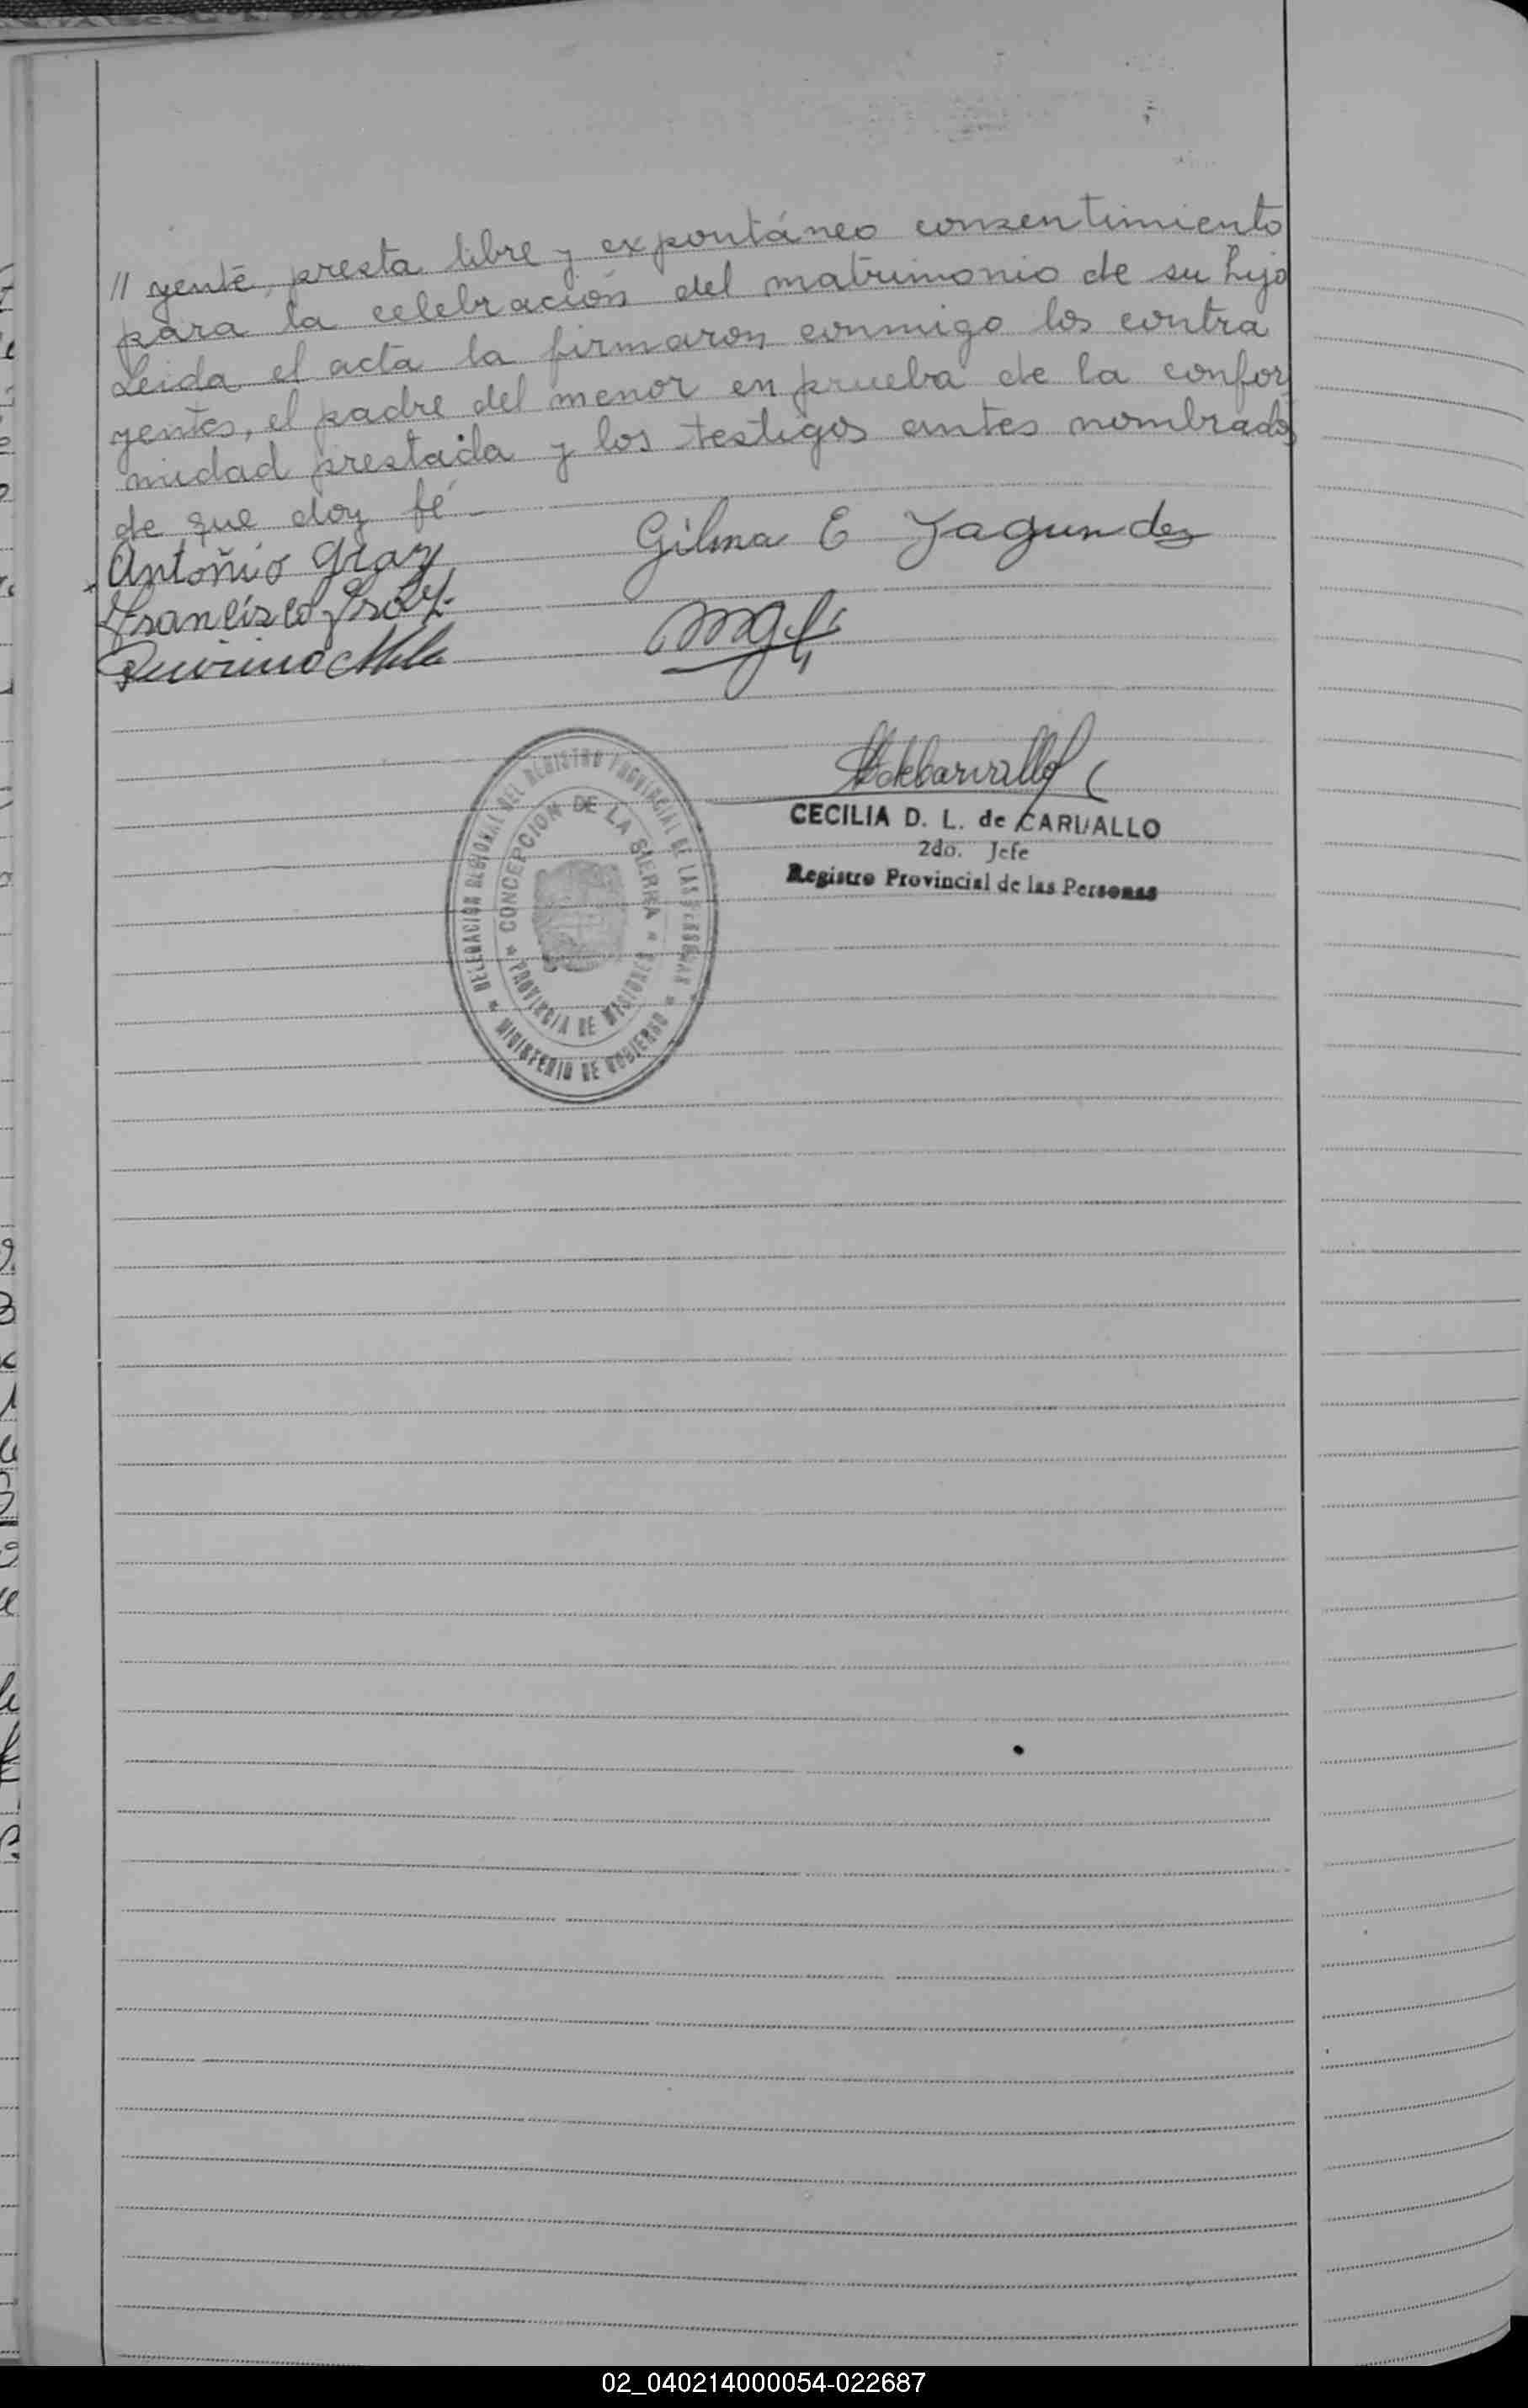 // yente, presta libre y expontáneo consentimiento
para la celebración del matrimonio de su hijo
Leida el acta la firmaron conmigo los contra
yentes, el padre del menor en prueba de la confor
midad prestada y los testigos antes nombrados
de que doy fé
Antoñio Gilma E Fagundez
Francisco
CECILIA D. L. de CARVALLO
2do. Jefe
Registro Provincial de las Personas
DELEGACION REGIONAL DEL REGISTRO PROVINCIAL DE LAS PERSONAS
* MINISTERIO DE GOBIERNO *
CONCEPCION DE LA SIERRA
* PROVINCIA DE MISIONES *
02_040214000054-022687